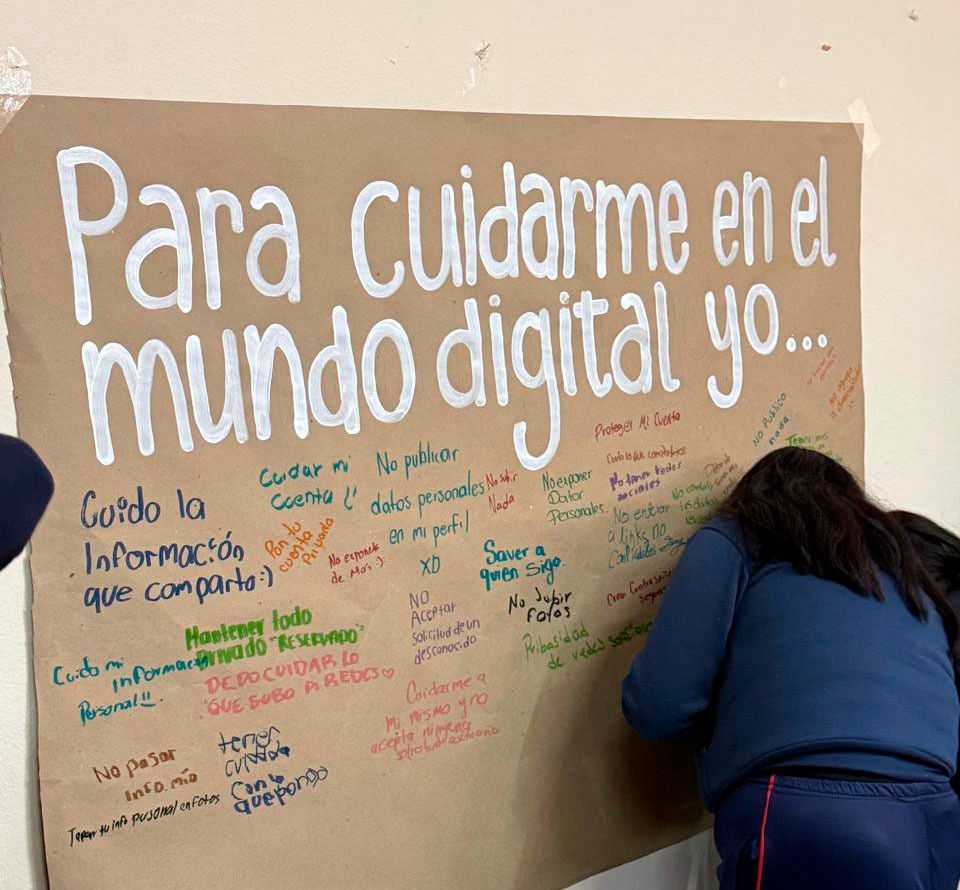 Para cuidarme en el
mundo digital yo...
Cuido la
Información
que comparto:)
Cuidar mi
cuenta
No publicar
datos personales
en mi perfil
XD
No subir
Nada
No exponer
Dator
Personales
Proteger Mi Cuenta
No tener redes
sociales
No entrar
a links no
No Publico
nada
Por tu
cuenta
Privada
No exponerte
de Mas :)
Saver a
quien sigo
No subir
Fotos
Crear Contraseñas
NO
Aceptar
solicitud de un
desconocido
Mantener todo
Privado "RESERVADO"
DEDO CUIDAR LO
QUE SUBO A REDES♡
Cuido mi
informacion
Personal!!
Pribasidad
de redes
Cuidarme a
Mi mismo y no
acepta ninguna
No pasar
info. mía
tener
cuidado
Con lo
que pongo
Tapar tu info pusonal en Fotos